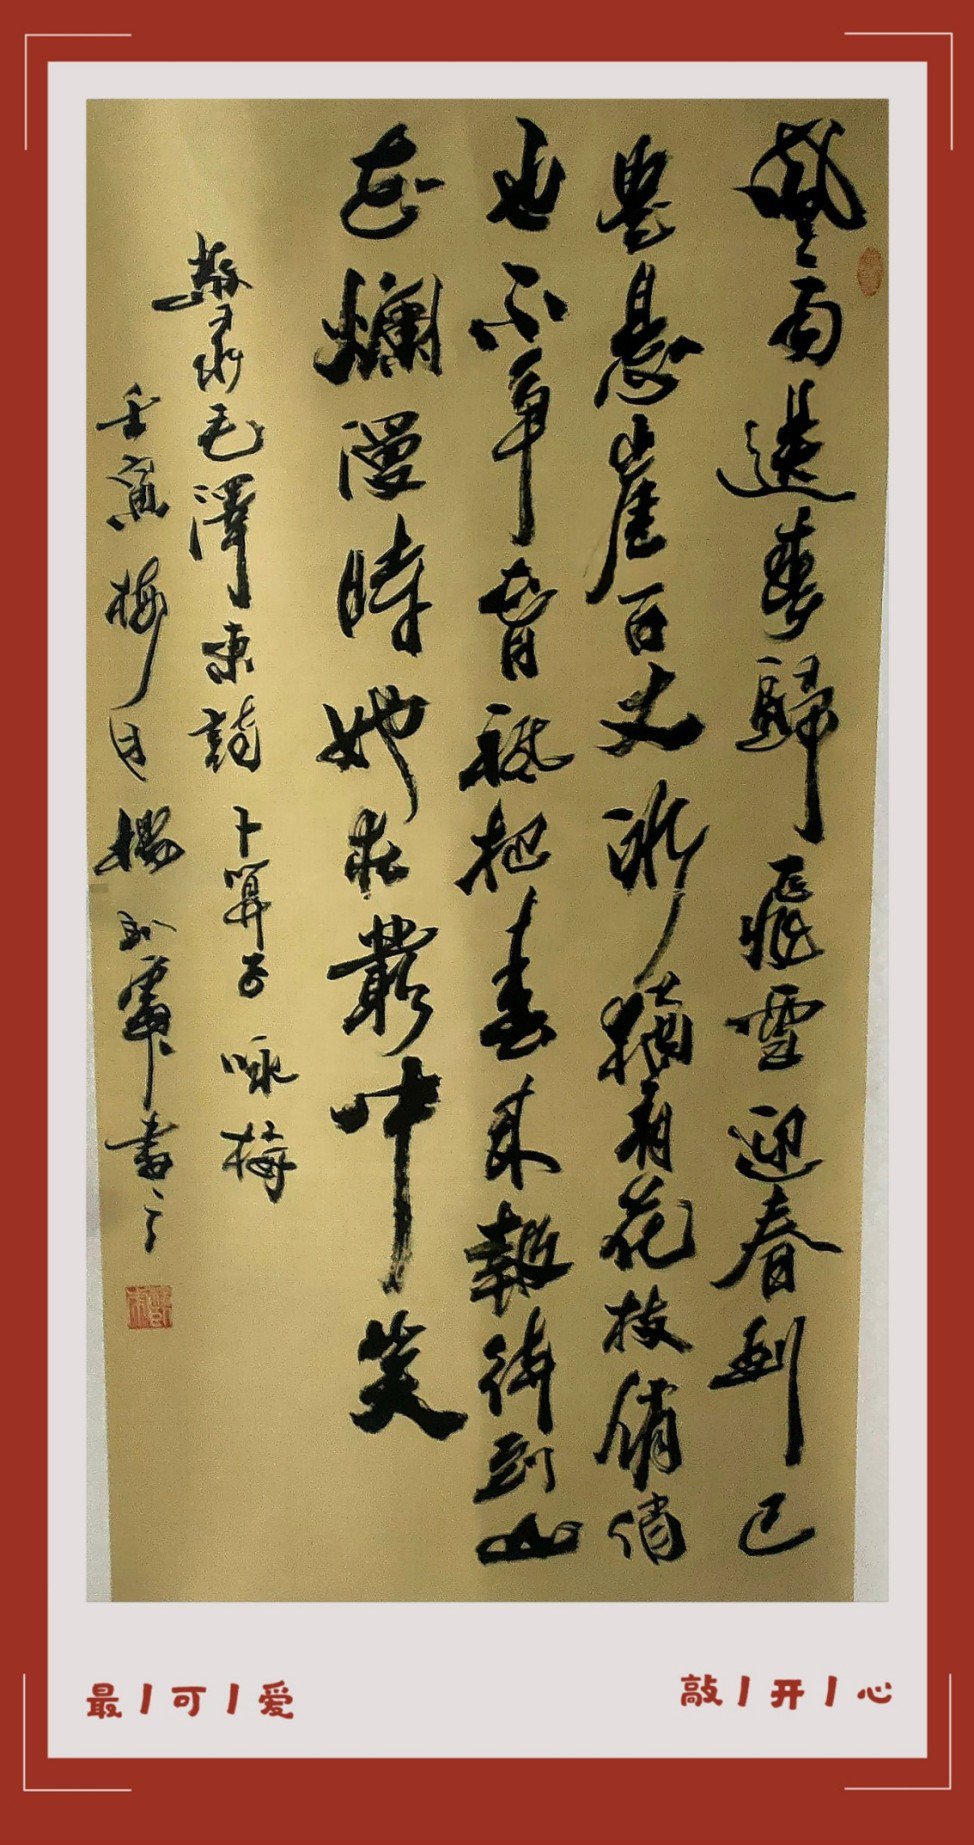 風雨送春歸飛雪迎春到已
是懸崖百丈冰猶有花枝俏俏
也不爭春祇把春來報待到山
花爛漫時她在叢中笑
敬录毛澤東詩卜算子咏梅
壬寅梅月楊軍書之
最丨可丨爱
敲丨开丨心